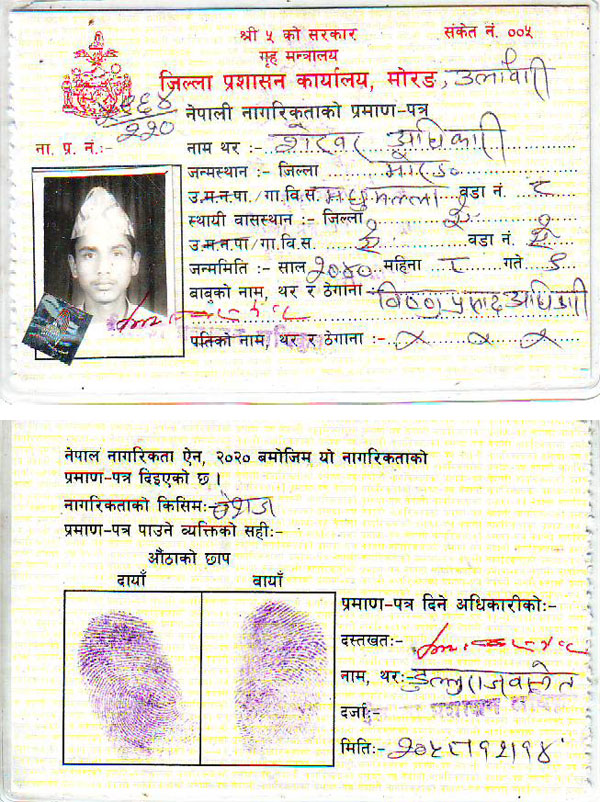 श्री ५ को सरकार
संकेत नं. ००५
गृह मन्त्रालय
जिल्ला प्रशासन कार्यालय, मोरङ,
नेपाली नागरिकताको प्रमाण-पत्र
ना. प्र. नं.:-
२२०
नाम थर :- अधिकारी
जन्मस्थान :- जिल्ला मोरङ
उ.म.न.पा./गा.वि.स. मधुमल्ला वडा नं. ८
स्थायी वासस्थान :- जिल्ला ऐ.
उ.म.न.पा./गा.वि.स. ऐ. वडा नं. ऐ.
जन्ममिति :- साल २०४० महिना ८ गते ९
बाबुको नाम, थर र ठेगाना : विष्णु प्रसाद अधिकारी
पतिको नाम, थर र ठेगाना :- x x x
नेपाल नागरिकता ऐन, २०२० बमोजिम यो नागरिकताको
प्रमाण-पत्र दिइएको छ।
नागरिकताको किसिम:- वंशज
प्रमाण-पत्र पाउने व्यक्तिको सही:-
औंठाको छाप
दायाँ बायाँ
प्रमाण-पत्र दिने अधिकारीको:-
दस्तखत:-
नाम, थर:-
दर्जा:-
मिति:-